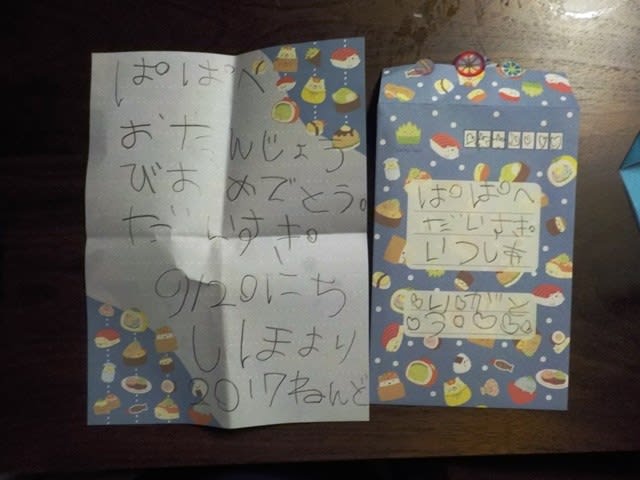 ぱぱへ
おたんじょう
びおめでとう。
だいすき。
9/20にち
しほより
2017ねんど
ぱぱへ
だいすき。
いつも
ありがと
う